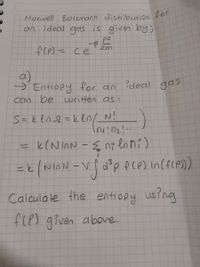 Maxwell Boltzmann distribution for
an ideal gas is given by;
f(p) = c e^{-β p²/2m}
a)
→ Entropy for an ideal gas
can be written as:
S = k ln Ω = k ln ( N! / n₁! n₂! ... )
= k (N ln N - Σᵢ nᵢ ln nᵢ)
= k (N ln N - V ∫ d³p f(p) ln(f(p)))
Calculate the entropy using
f(p) given above.